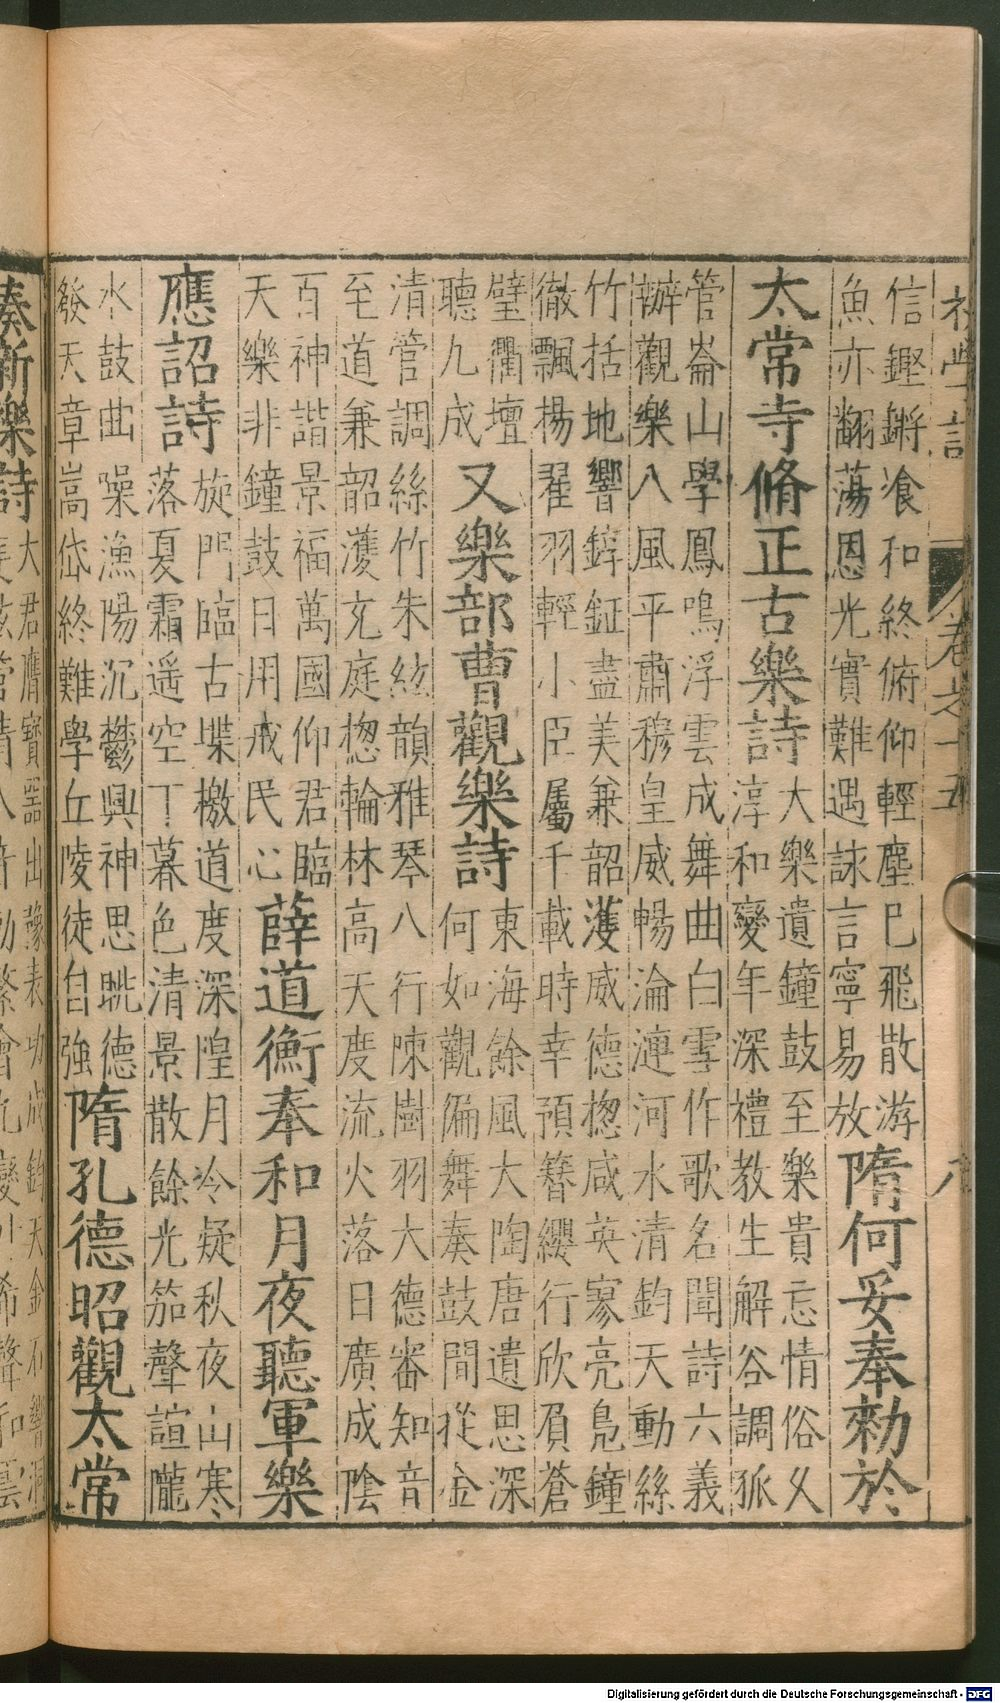 初學記 卷之十五 八
信鏗鏘飡和終俯仰輕塵巳飛散游
魚亦翻蕩恩光實難遇詠言寧易放
隋何妥奉勑於
太常寺脩正古樂詩
大樂遺鐘鼓至樂貴忘情俗久
淳和變年深禮教生解谷調孤
管崙山學鳳鳴浮雲成舞曲白雪作歌名聞詩六義
辦觀樂八風平肅穆皇威暢淪漣河水清鈞天動絲
竹括地響錞鉦盡美兼韶濩威德揔咸英寥亮鳧鐘
徹飄楊翟羽輕小臣屬千載時幸預簪纓行欣負蒼
璧衢壇
聽九成
又樂部曹觀樂詩
東海餘風大陶唐遺思深
何如觀徧舞奏鼓間從金
清管調絲竹朱絃韻雅琴八行陳樹羽大德審知音
至道兼韶濩充庭揔輪林高天度流火落日廣成陰
百神諧景福萬國仰君臨
天樂非鐘鼓日用戒民心
薛道衡奉和月夜聽軍樂
應詔詩
旋門臨古堞檄道度深隍月冷疑秋夜山寒
落夏霜遥空丁暮色清景散餘光笳聲諠隴
水鼓曲噪漁陽沉鬱興神思眺德
發天章嵩岱終難學丘陵徒自強
隋孔德昭觀太常
奏新樂詩
大君膺寶 出豫表功成鈞天金石響洞
Digitalisierung gefördert durch die Deutsche Forschungsgemeinschaft - DFG